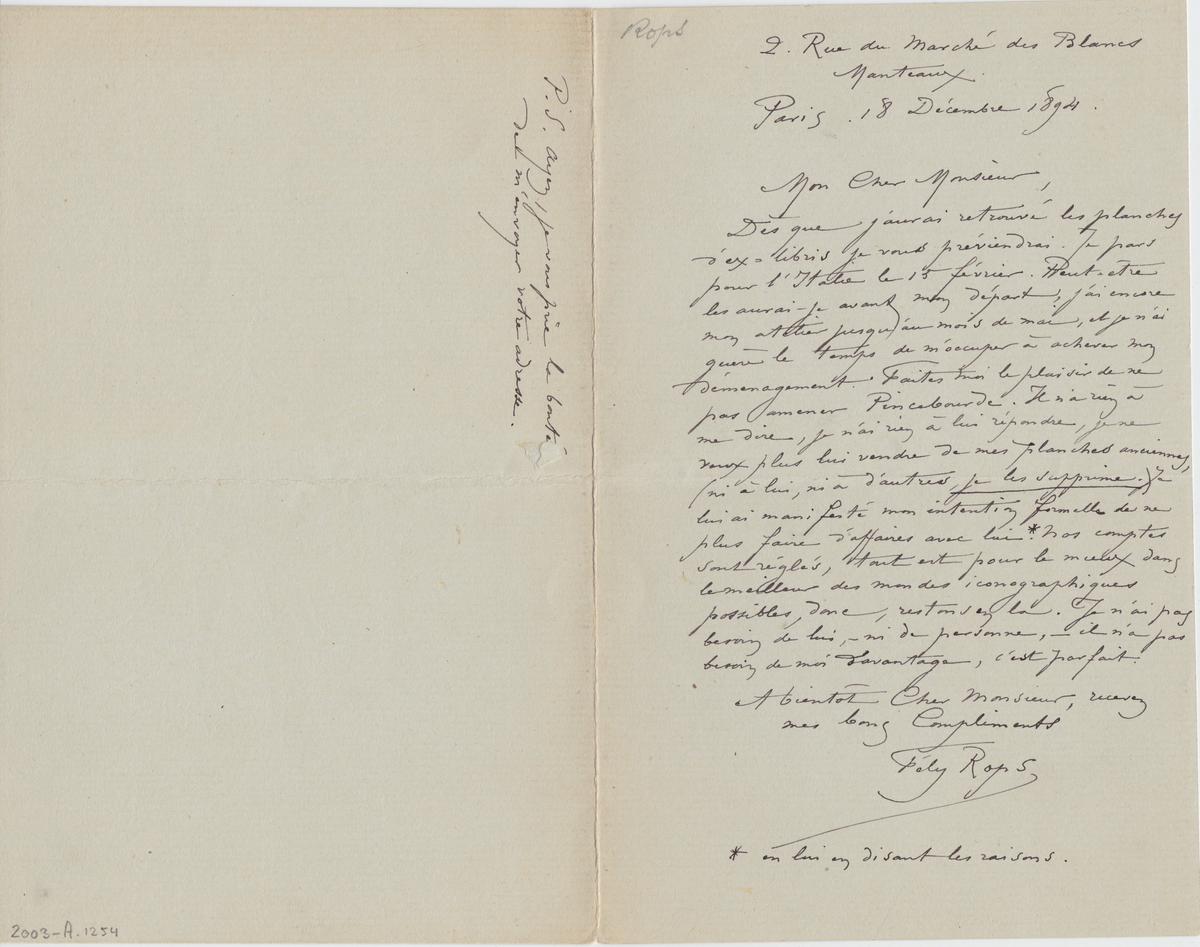 Rops
2. Rue du Marché des Blancs
Manteaux.
Paris . 18 Décembre 1894 .
Mon Cher Monsieur,
Dès que j'aurai retrouvé les planches
d'ex=libris je vous préviendrai. Je pars
pour l'Italie le 15 février. Peut-être
les aurai-je avant mon départ, j'ai encore
mon atelier jusqu'au mois de mai, et je n'ai
guère le temps de m'occuper à achever mon
déménagement. Faites moi le plaisir de ne
pas amener Pincebourde. Il n'a rien à
me dire, je n'ai rien à lui répondre, je ne
veux plus lui vendre de mes planches anciennes,
(ni à lui, ni à d'autres, je les supprime.) Je
lui ai manifesté mon intention formelle de ne
plus faire d'affaires avec lui.* Nos comptes
sont réglés, tout est pour le mieux dans
le meilleur des mondes iconographiques
possibles, donc, restons en là. Je n'ai pas
besoin de lui, - ni de personne, - il n'a pas
besoin de moi davantage, c'est parfait.
A bientôt Cher Monsieur, recevez
mes bons Compliments
Fély Rops
* en lui en disant les raisons.
P.S. ayez, je vous prie la bonté
de m'envoyer votre adresse.
2003-A.1254